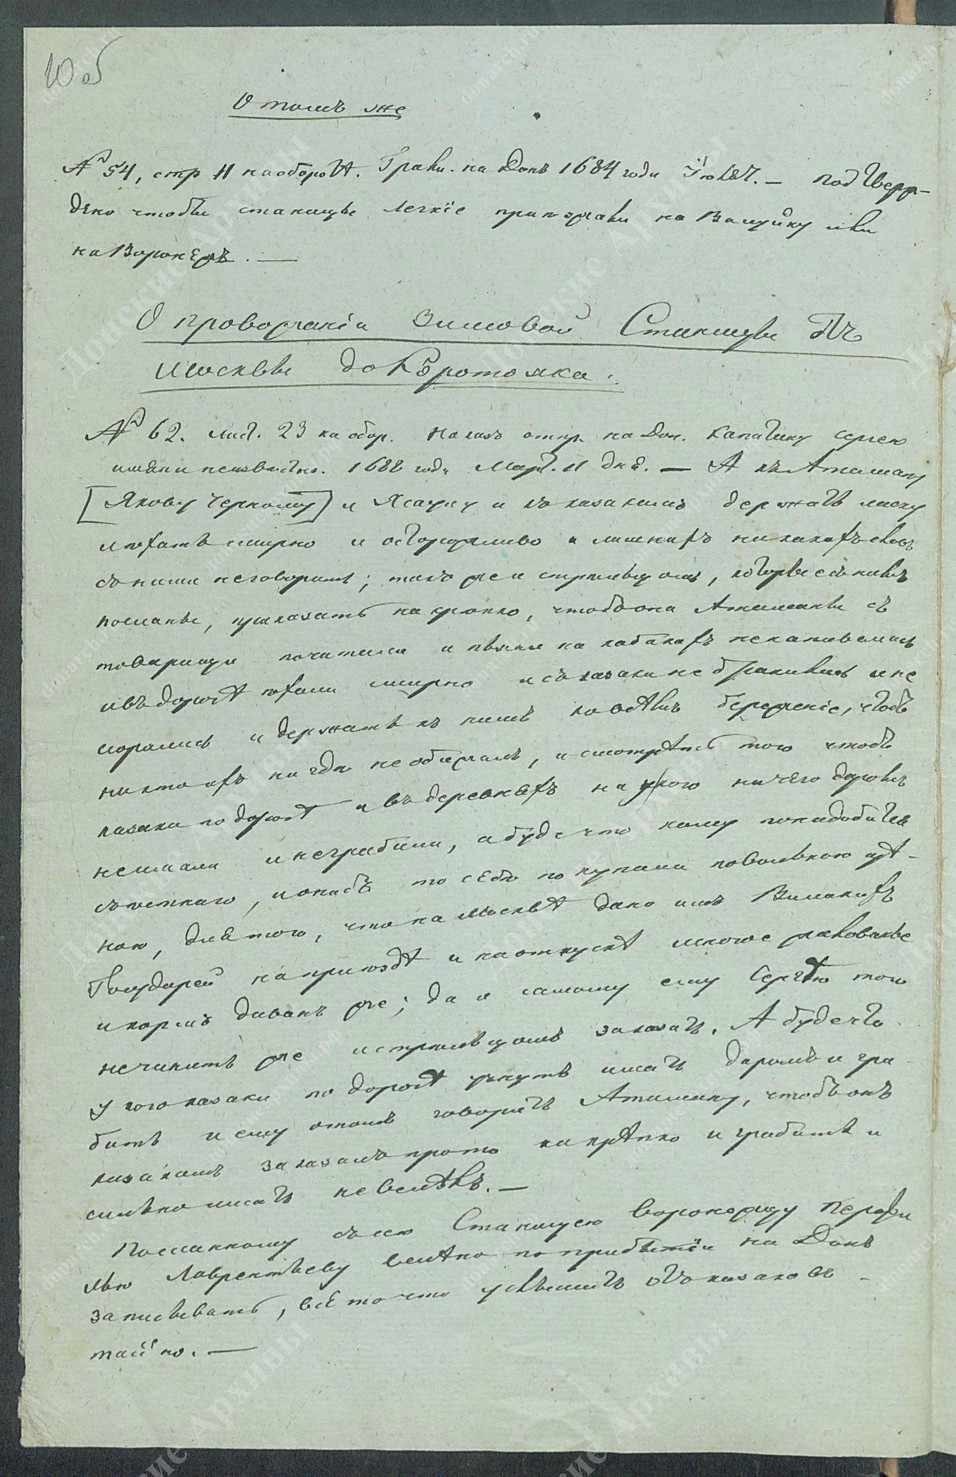 10 об
О томъ же
№ 54, стр. 11 на оборотѣ. Грам. на Донъ 1684 года Іюля. — Подтвер-
дено чтобы станицы легкіе пріѣзжали на Валуйку или
на Воронежъ. —
О провожаніи Зимовой Станицы Отъ
Москвы до Коротояка.
№ 62. лист. 23 на обор. Наказъ отпр. на Дон. капитану Сергею
имѣни неизвѣстно. 1688 года Март. 11 дня. — А къ Атаману
[Якову Черному] и Ясаулу и къ казакамъ держать ласку
и ѣхать смирно и осторожливо и лишнихъ никакихъ словъ
съ ними не говорить; такъ же и стрельцомъ, которые съ нимъ
посланы, приказать накрепко, чтобъ они Атамана съ
товарищи почитали и пьяни на кабакахъ не напивались
и въ дорогѣ ѣхали смирно и съ казаки не бранились и не
ссорились и держать къ нимъ во всемъ береженіе, чтобъ
никто ихъ нигдѣ не обижалъ, и смотрѣть того чтобъ
казаки по дорогѣ и въ деревняхъ ни у кого ничего даромъ
не имали и не грабили, а буде что кому понадобитца
съестнаго, и они бъ то себѣ покупали повольною цѣ-
ною, для того, что на Москвѣ дано имъ Великихъ
Государей на пріѣздѣ и на отпускѣ многое жалованье
и кормъ даванъ же; да и самому ему Сергѣю того
не чинить же и стрельцомъ заказать. А буде что
у кого казаки по дорогѣ учнутъ имать даромъ и гра-
бить и ему о томъ говорить Атаману, чтобъ онъ
казакомъ заказалъ про то накрѣпко и грабить и
сильно имать не велѣлъ. —
Посланному съ сею Станицею воронежцу Перфи
лью Лаврентьеву велѣно по прибытіи на Донъ
записывать, всѣ то что услышитъ отъ казаковъ
тайно. —